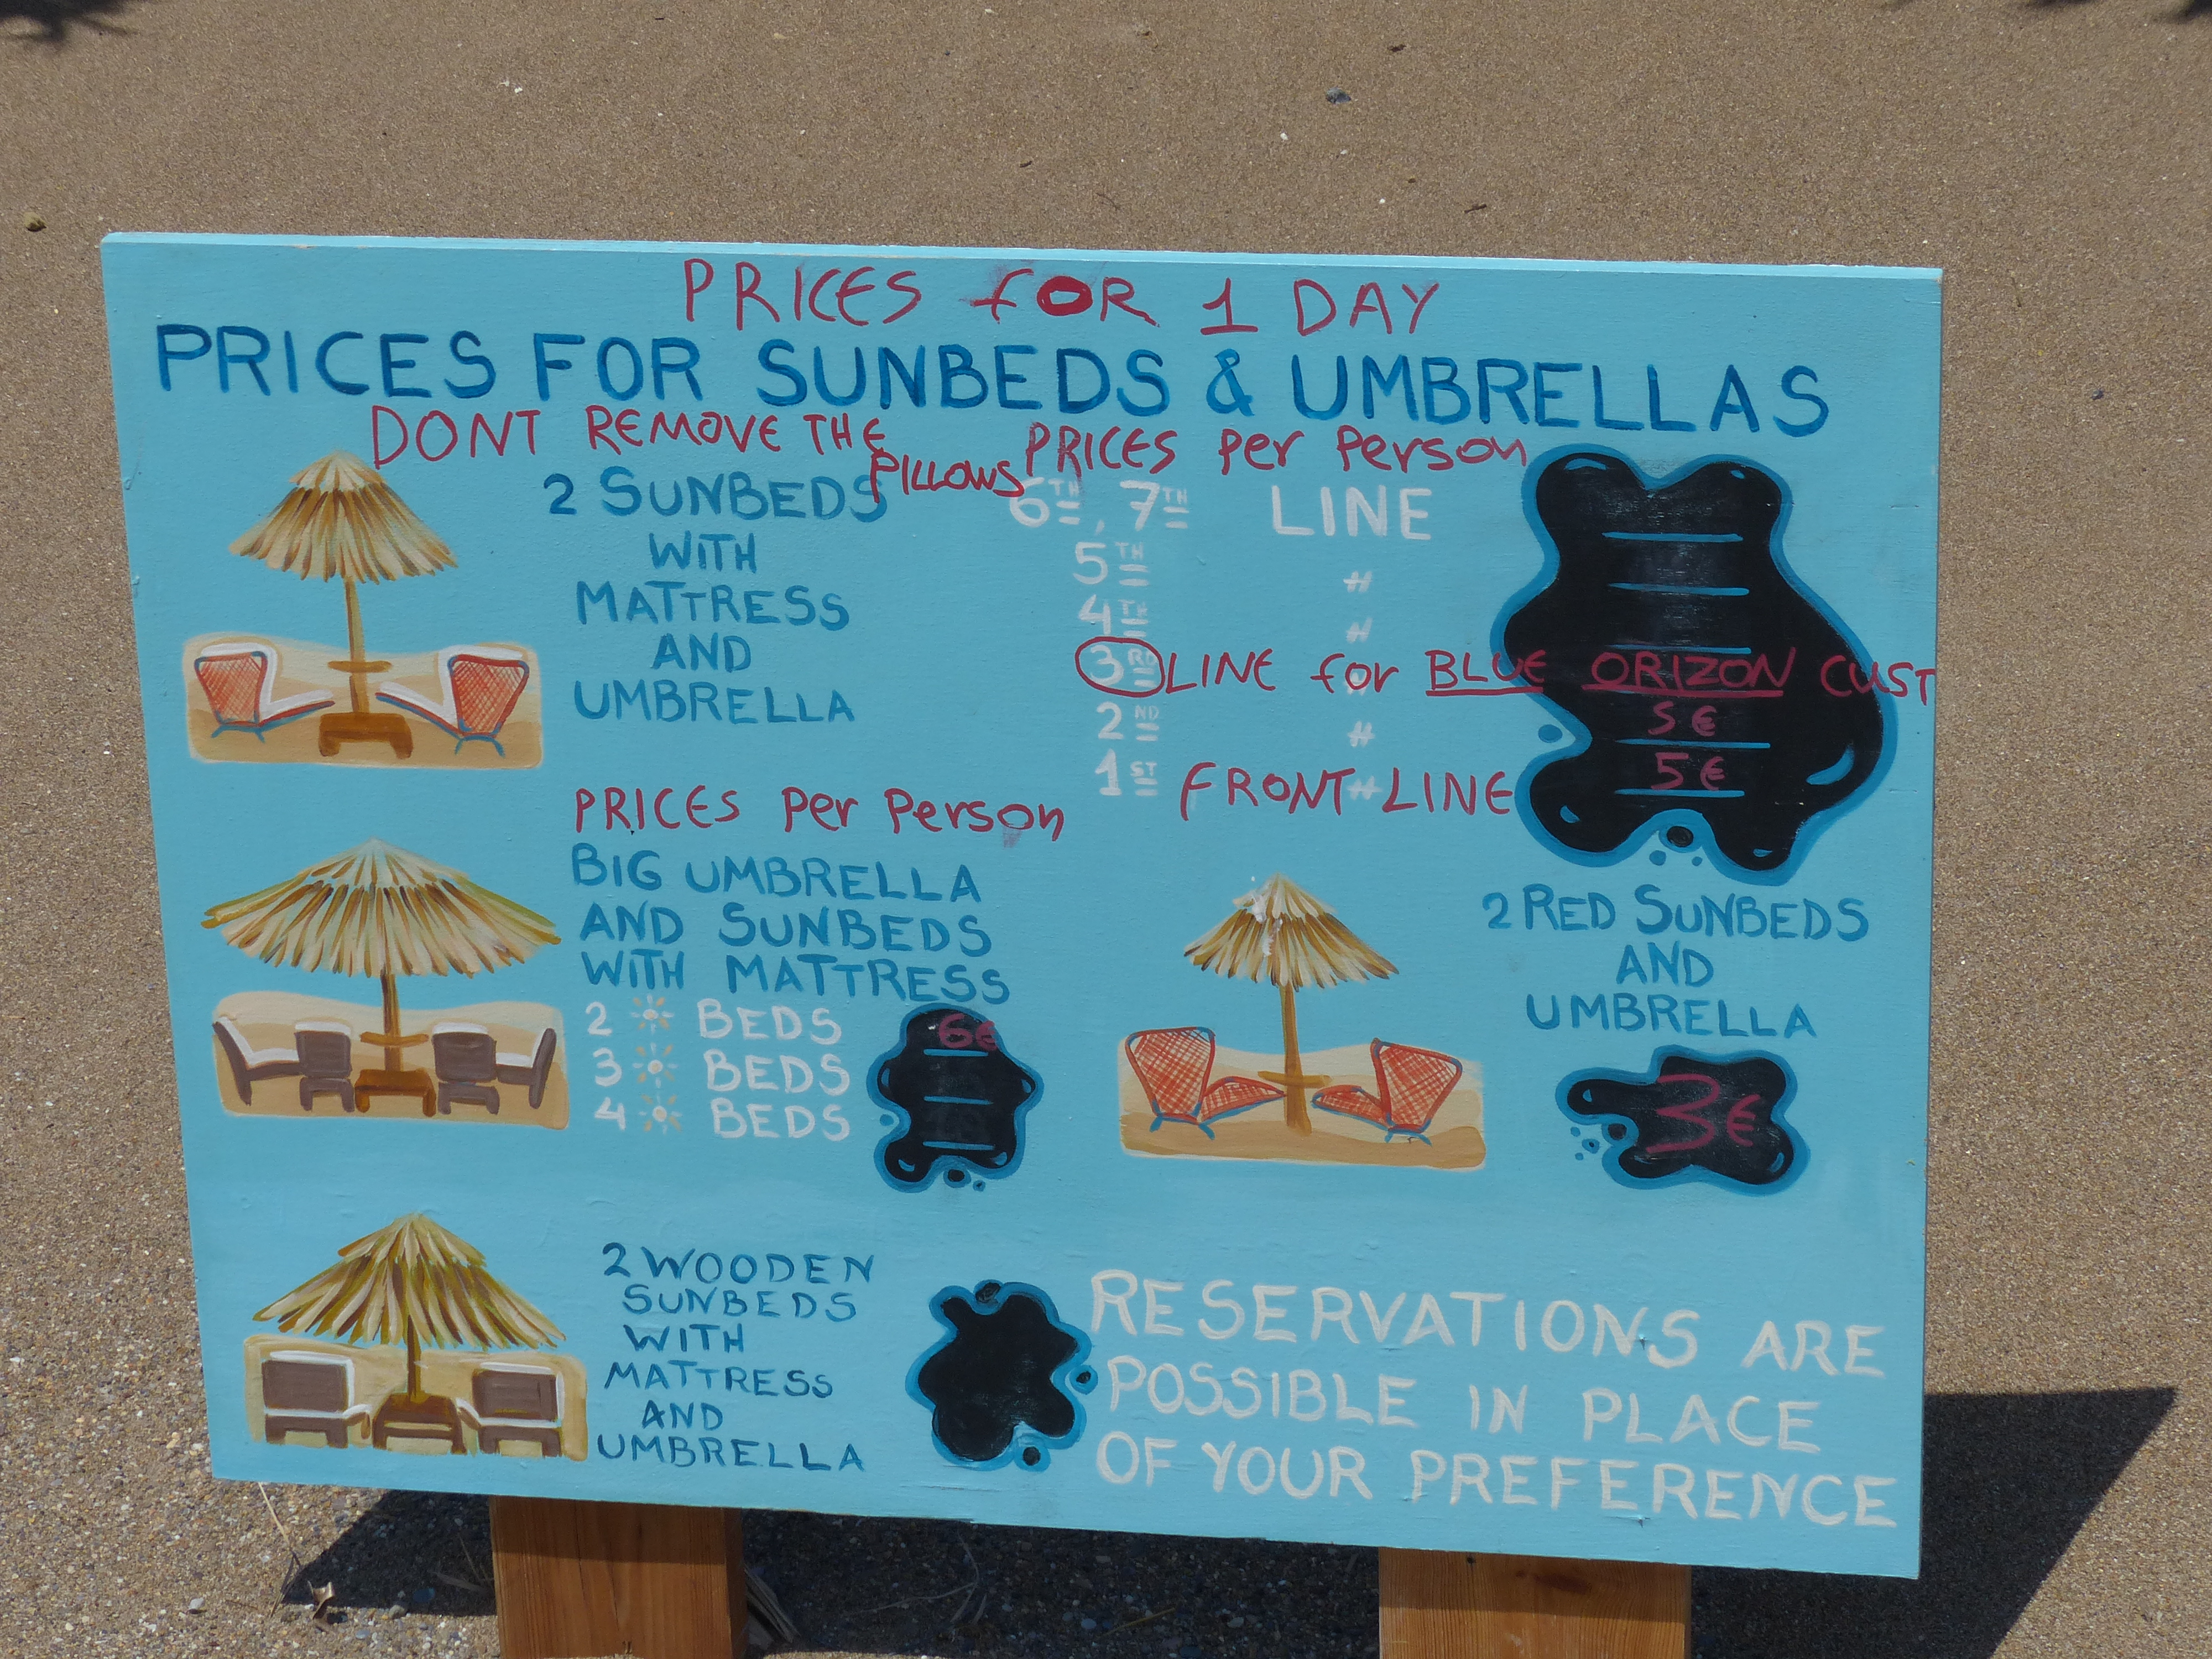 PRICES fOR 1 DAY
PRICES FOR SUNBEDS & UMBRELLAS
DONT REMOVE THE
PILLOWS
2 SUNBEDS
WITH
MATTRESS
AND
UMBRELLA
PRICES Per Person
6TH, 7TH LINE
5TH "
4TH "
3RD LINE for BLUE ORIZON CUST
2ND " 5€
1ST FRONT LINE 5€
PRICES Per Person
BIG UMBRELLA
AND SUNBEDS
WITH MATTRESS
2 BEDS 6€
3 BEDS
4 BEDS
2 RED SUNBEDS
AND
UMBRELLA
3€
2 WOODEN
SUNBEDS
WITH
MATTRESS
AND
UMBRELLA
RESERVATIONS ARE
POSSIBLE IN PLACE
OF YOUR PREFERENCE